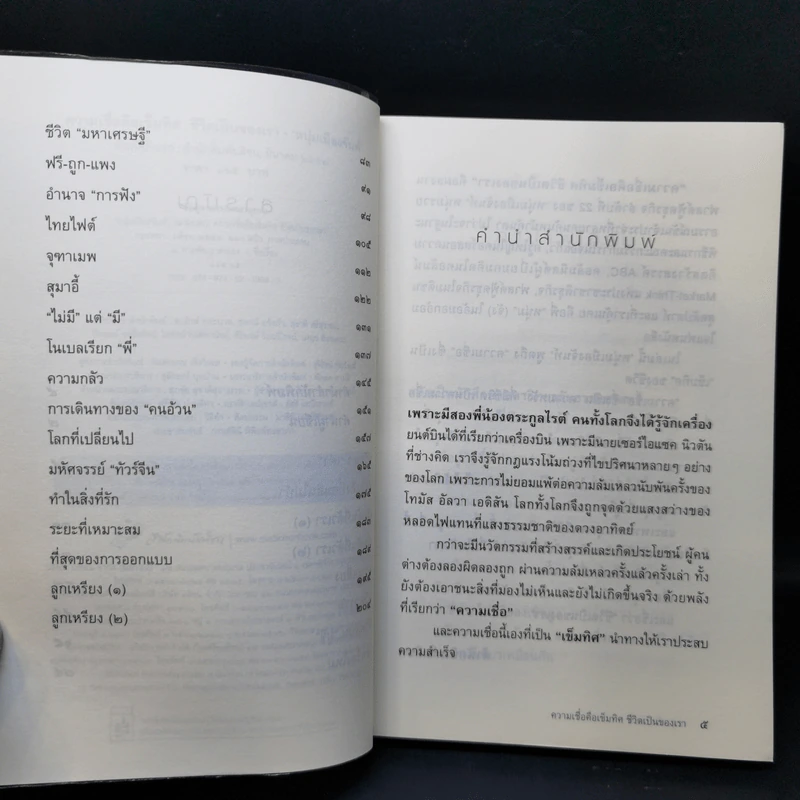 ชีวิต “มหาเศรษฐี” ๘๓
ฟรี-ถูก-แพง ๙๑
อำนาจ “การฟัง” ๙๘
ไทยไฟต์ ๑๐๕
จุฑาเมพ ๑๑๒
สุมาอี้ ๑๒๒
“ไม่มี” แต่ “มี” ๑๓๑
โนเบลเรียก “พี่” ๑๓๗
ความกลัว ๑๔๕
การเดินทางของ “คนอ้วน” ๑๕๑
โลกที่เปลี่ยนไป ๑๕๗
มหัศจรรย์ “ทัวร์จีน” ๑๖๕
ทำในสิ่งที่รัก ๑๗๕
ระยะที่เหมาะสม ๑๘๐
ที่สุดของการออกแบบ ๑๘๙
ลูกเหรียง (๑) ๑๙๕
ลูกเหรียง (๒) ๒๐๔
คำนำสำนักพิมพ์
เพราะมีสองพี่น้องตระกูลไรต์ คนทั้งโลกจึงได้รู้จักเครื่อง
ยนต์บินได้ที่เรียกว่าเครื่องบิน เพราะมีนายเซอร์ไอแซค นิวตัน
ที่ช่างคิด เราจึงรู้จักกฎแรงโน้มถ่วงที่ไขปริศนาหลายๆ อย่าง
ของโลก เพราะการไม่ยอมแพ้ต่อความล้มเหลวนับพันครั้งของ
โทมัส อัลวา เอดิสัน โลกทั้งโลกจึงถูกจุดด้วยแสงสว่างของ
หลอดไฟแทนที่แสงธรรมชาติของดวงอาทิตย์
กว่าจะมีนวัตกรรมที่สร้างสรรค์และเกิดประโยชน์ ผู้คน
ต่างต้องลองผิดลองถูก ผ่านความล้มเหลวครั้งแล้วครั้งเล่า ทั้ง
ยังต้องเอาชนะสิ่งที่มองไม่เห็นและยังไม่เกิดขึ้นจริง ด้วยพลัง
ที่เรียกว่า “ความเชื่อ”
และความเชื่อนี้เองที่เป็น “เข็มทิศ” นำทางให้เราประสบ
ความสำเร็จ
ความเชื่อคือเข็มทิศ ชีวิตเป็นของเรา ๕